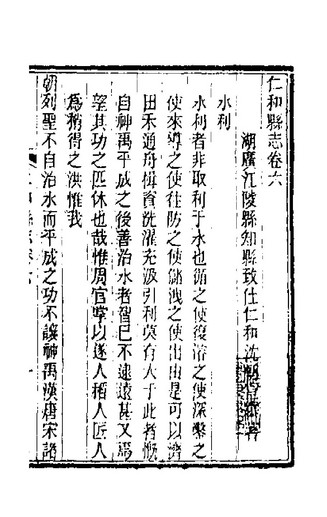 仁和縣志卷六
湖廣江陵縣知縣致仕仁和沈朝宣纂著
水利
水利者非取利于水也循之使復浴之使深鑿之
使來導之使往防之使儲洩之使出由是可以濟
田禾通舟楫資洗濯充汲引利莫有大于此者慨
自神禹平成之後善治水者蓋已不逮遠甚又焉
望其功之匹休也哉惟周官掌以遂人稻人匠人
為稍得之洪惟我
朝列聖不自治水而平成之功不讓神禹漢唐宋諸